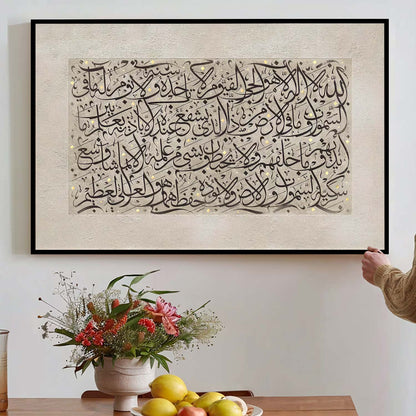 الله لا إله إلا هو الحي القيوم لا تأخذه سنة ولا نوم له ما في
السموات وما في الأرض من ذا الذي يشفع عنده إلا بإذنه يعلم ما
بين أيديهم وما خلفهم ولا يحيطون بشيء من علمه إلا بما شاء وسع
كرسيه السموات والأرض ولا يؤده حفظهما وهو العلي العظيم